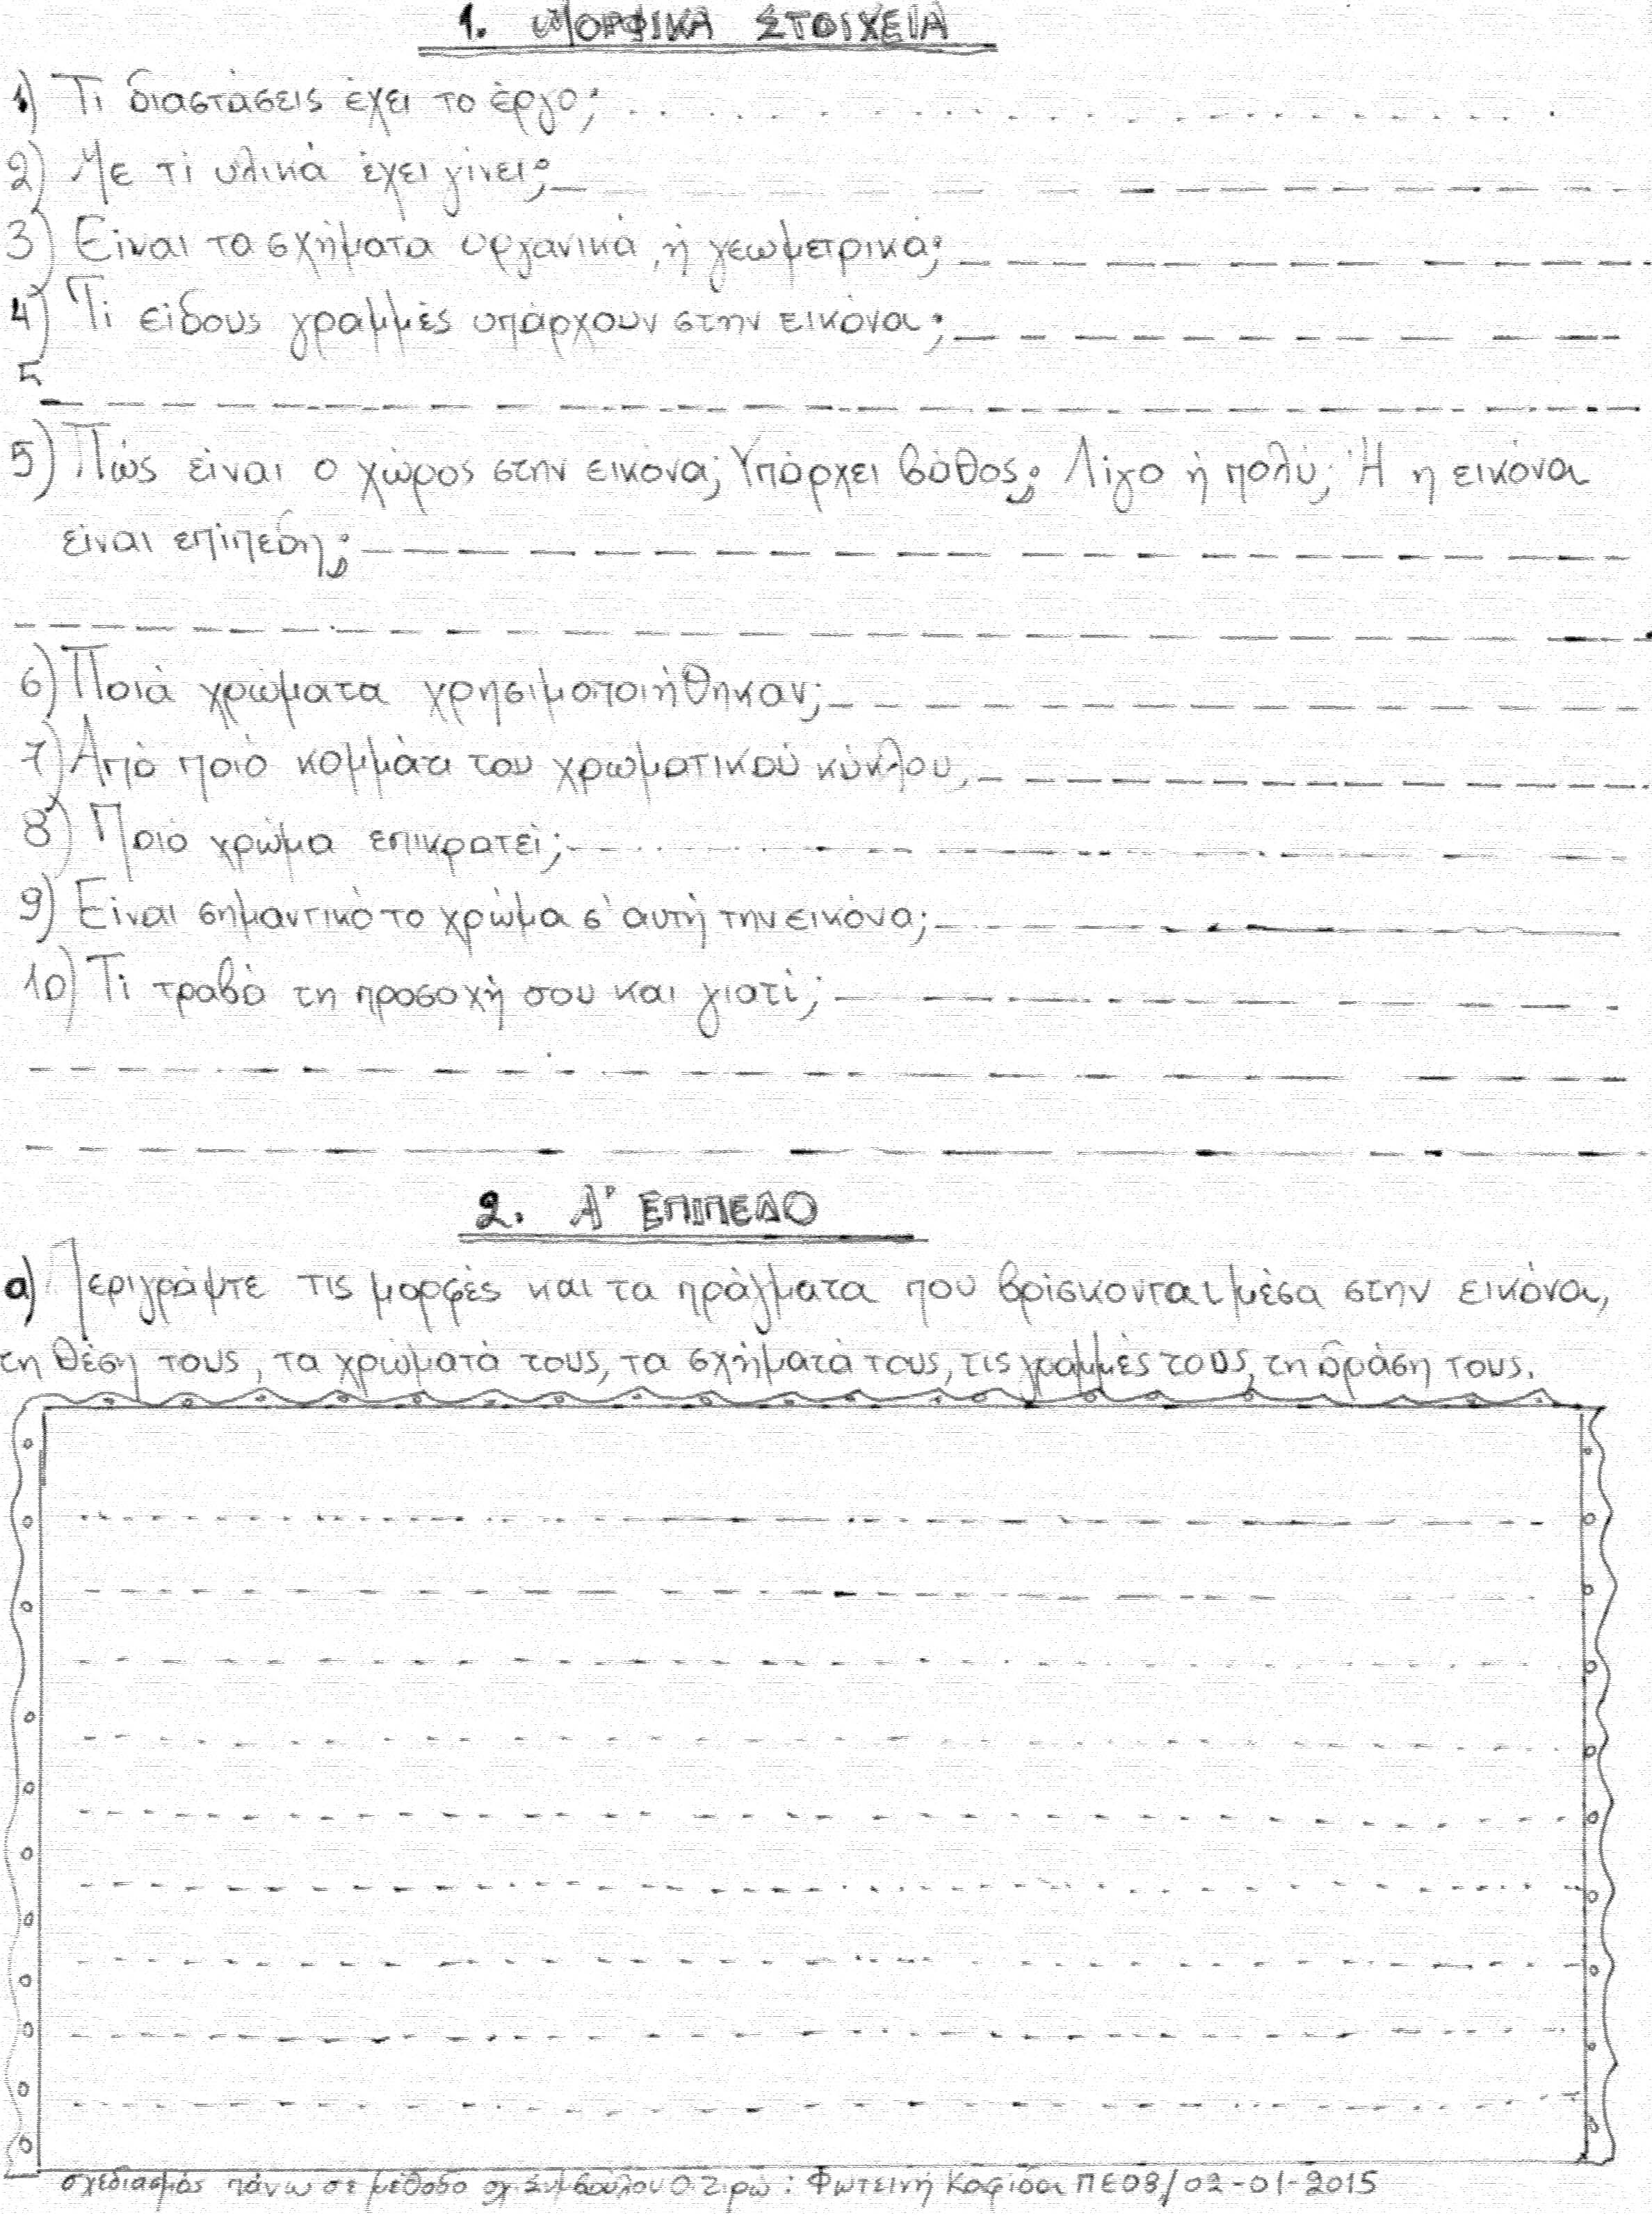 1. ΜΟΡΦΙΚΑ ΣΤΟΙΧΕΙΑ
1) Τι διαστάσεις έχει το έργο;
2) Με τί υλικά έχει γίνει;
3) Είναι τα σχήματα οργανικά, ή γεωμετρικά;
4) Τι είδους γραμμές υπάρχουν στην εικόνα;
5
5) Πώς είναι ο χώρος στην εικόνα; Υπάρχει βάθος; Λίγο ή πολύ; Ή η εικόνα
είναι επίπεδη;
6) Ποιά χρώματα χρησιμοποιήθηκαν;
7) Από ποιό κομμάτι του χρωματικού κύκλου,
8) Ποιό χρώμα επικρατεί;
9) Είναι σημαντικό το χρώμα σ' αυτή την εικόνα;
10) Τι τραβά τη προσοχή σου και γιατί;
2. Α' ΕΠΙΠΕΔΟ
α) Περιγράψτε τις μορφές και τα πράγματα που βρίσκονται μέσα στην εικόνα,
τη θέση τους, τα χρώματά τους, τα σχήματά τους, τις γραμμές τους, τη δράση τους.
σχεδιασμός πάνω σε μέθοδο σχ. Συμβούλου Ο. Ζιρώ: Φωτεινή Καφίδα ΠΕ08/02-01-2015